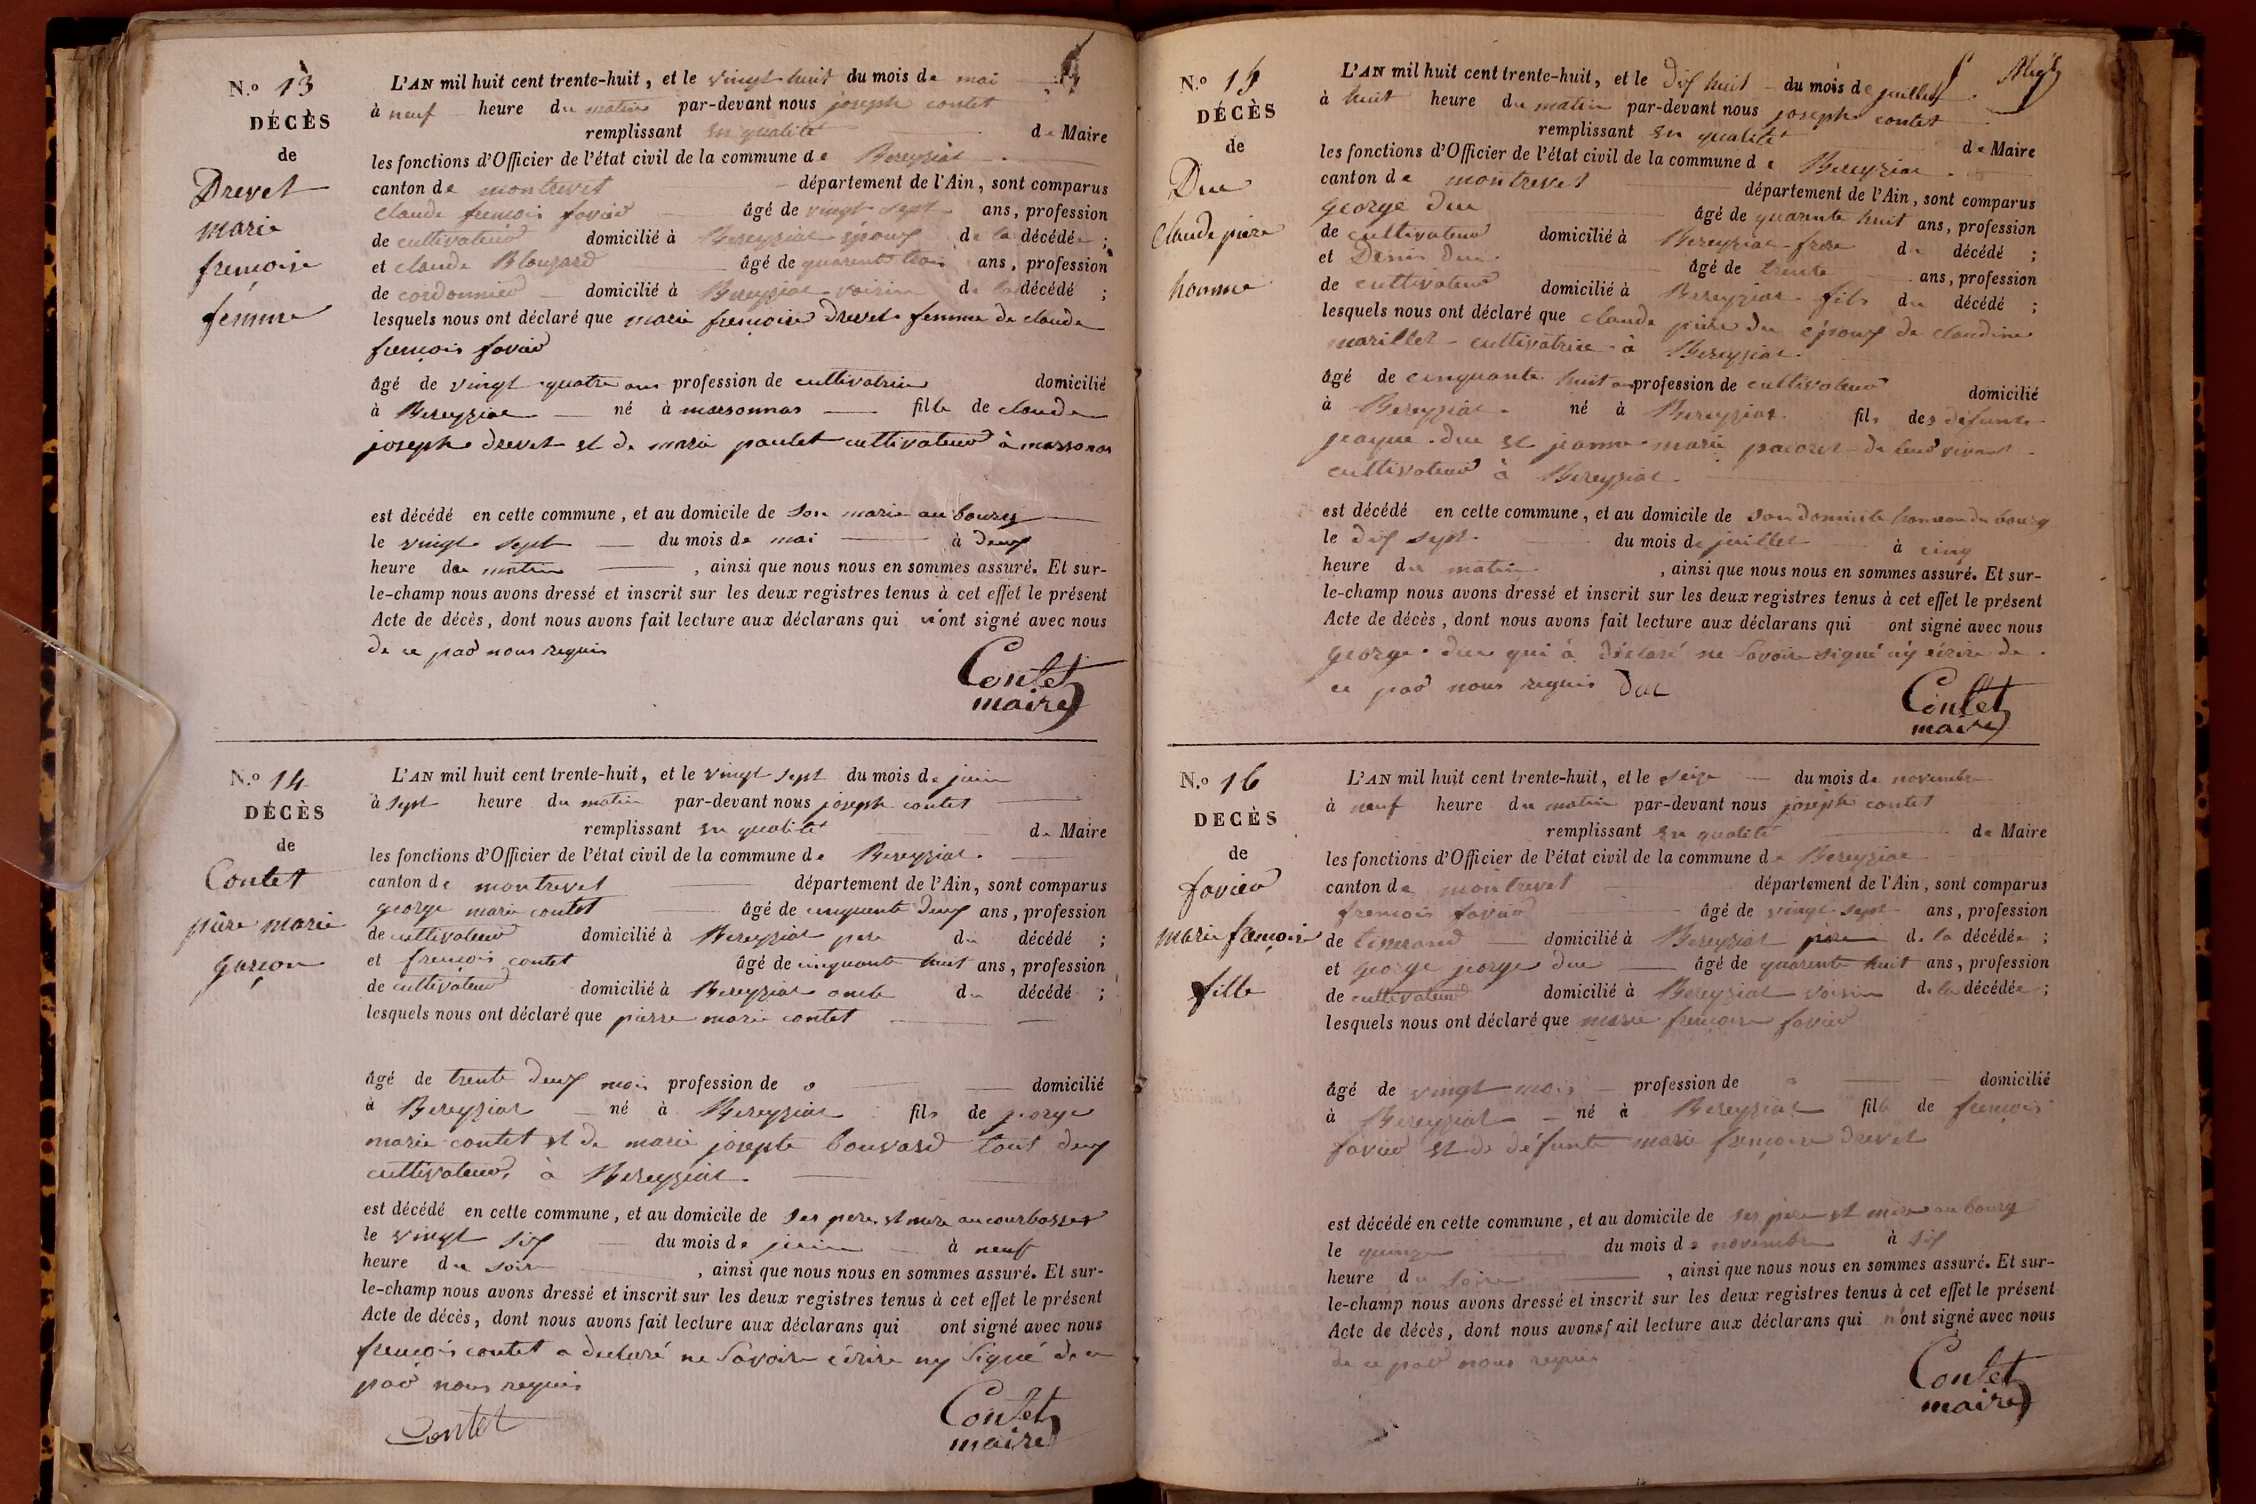 N.o 13
DÉCÈS
de
Drevet
marie
françoise
femme
L'AN mil huit cent trente-huit, et le vingt huit du mois de mai
à neuf heure du matin par-devant nous joseph contet
remplissant en qualité de Maire
les fonctions d'Officier de l'état civil de la commune de Bereyziat
canton de montrevet département de l'Ain, sont comparus
claude francois favier âgé de vingt sept ans, profession
de cultivateur domicilié à Bereyziat époux de la décédée ;
et claude Blouzard âgé de quarente trois ans, profession
de cordonnier domicilié à Bereyziat voisin de la décédé ;
lesquels nous ont déclaré que marie françoise drevet femme de claude
francois favier
âgé de vingt quatre ans profession de cultivatrice domicilié
à Bereyziat né à marsonnas fille de claude
joseph drevet et de marie paulet cultivateur à marsonas
est décédé en cette commune, et au domicile de son marie au bourg
le vingt sept du mois de mai à deux
heure du matin , ainsi que nous nous en sommes assuré. Et sur-
le-champ nous avons dressé et inscrit sur les deux registres tenus à cet effet le présent
Acte de décès, dont nous avons fait lecture aux déclarans qui n'ont signé avec nous
de ce par nous requis
Contet
maire
N.o 14
DÉCÈS
de
Contet
pière marie
garçon
L'AN mil huit cent trente-huit, et le vingt sept du mois de juin
à sept heure du matin par-devant nous joseph contet
remplissant en qualité de Maire
les fonctions d'Officier de l'état civil de la commune de Bereyziat
canton de montrevet département de l'Ain, sont comparus
george marie contet âgé de cinquente deux ans, profession
de cultivateur domicilié à Bereyziat pere du décédé ;
et francois contet âgé de cinquante huit ans, profession
de cultivateur domicilié à Bereyziat oncle du décédé ;
lesquels nous ont déclaré que pierre marie contet
âgé de trente deux mois profession de domicilié
à Bereyziat né à Bereyziat fils de george
marie contet et de marie josepte bouvard tout deux
cultivateur, à Bereyziat
est décédé en cette commune, et au domicile de ses pere et mere au courbasset
le vingt six du mois de juin à neuf
heure du soir , ainsi que nous nous en sommes assuré. Et sur-
le-champ nous avons dressé et inscrit sur les deux registres tenus à cet effet le présent
Acte de décès, dont nous avons fait lecture aux déclarans qui ont signé avec nous
francois contet a declaré ne savoir écrire ny signé de ce
par nous requis
Contet
Contet
maire
N.o 15
DÉCÈS
de
Duc
Claude piere
homme
L'AN mil huit cent trente-huit, et le dix huit du mois de juillet
à huit heure du matin par-devant nous joseph contet
remplissant en qualité de Maire
les fonctions d'Officier de l'état civil de la commune de Bereyziat
canton de montrevet département de l'Ain, sont comparus
george duc âgé de quarente huit ans, profession
de cultivateur domicilié à Bereyziat frere du décédé ;
et Denis duc âgé de trente ans, profession
de cultivateur domicilié à Bereyziat fils du décédé ;
lesquels nous ont déclaré que claude pière duc époux de claudine
marillet cultivatrice à Bereyziat
âgé de cinquante huit ans profession de cultivateur domicilié
à Bereyziat né à Bereyziat fils des défunts
jeaque duc et jeanne marie pacoret de leur vivant
cultivateur à Bereyziat
est décédé en cette commune, et au domicile de son domicile hameau du bourg
le dix sept du mois de juillet à cinq
heure du matin , ainsi que nous nous en sommes assuré. Et sur-
le-champ nous avons dressé et inscrit sur les deux registres tenus à cet effet le présent
Acte de décès, dont nous avons fait lecture aux déclarans qui ont signé avec nous
george duc qui à déclaré ne savoir signé ny écrire de
ce par nous requis duc
Contet
maire
N.o 16
DECÈS
de
favier
marie françoise
fille
L'AN mil huit cent trente-huit, et le seize du mois de novembre
à neuf heure du matin par-devant nous joseph contet
remplissant en qualité de Maire
les fonctions d'Officier de l'état civil de la commune de Bereyziat
canton de montrevet département de l'Ain, sont comparus
francois favier âgé de vingt sept ans, profession
de tisserand domicilié à Bereyziat père de la décédée ;
et george george duc âgé de quarente huit ans, profession
de cultivateur domicilié à Bereyziat voisin de la décédée ;
lesquels nous ont déclaré que marie françoise favier
âgé de vingt mois profession de domicilié
à Bereyziat né à Bereyziat fille de francois
favier et de défunte marie françoise drevet
est décédé en cette commune, et au domicile de ses père et mère au bourg
le quinze du mois de novembre à six
heure du soire , ainsi que nous nous en sommes assuré. Et sur-
le-champ nous avons dressé et inscrit sur les deux registres tenus à cet effet le présent
Acte de décès, dont nous avons fait lecture aux déclarans qui n'ont signé avec nous
de ce par nous requis
Contet
maire